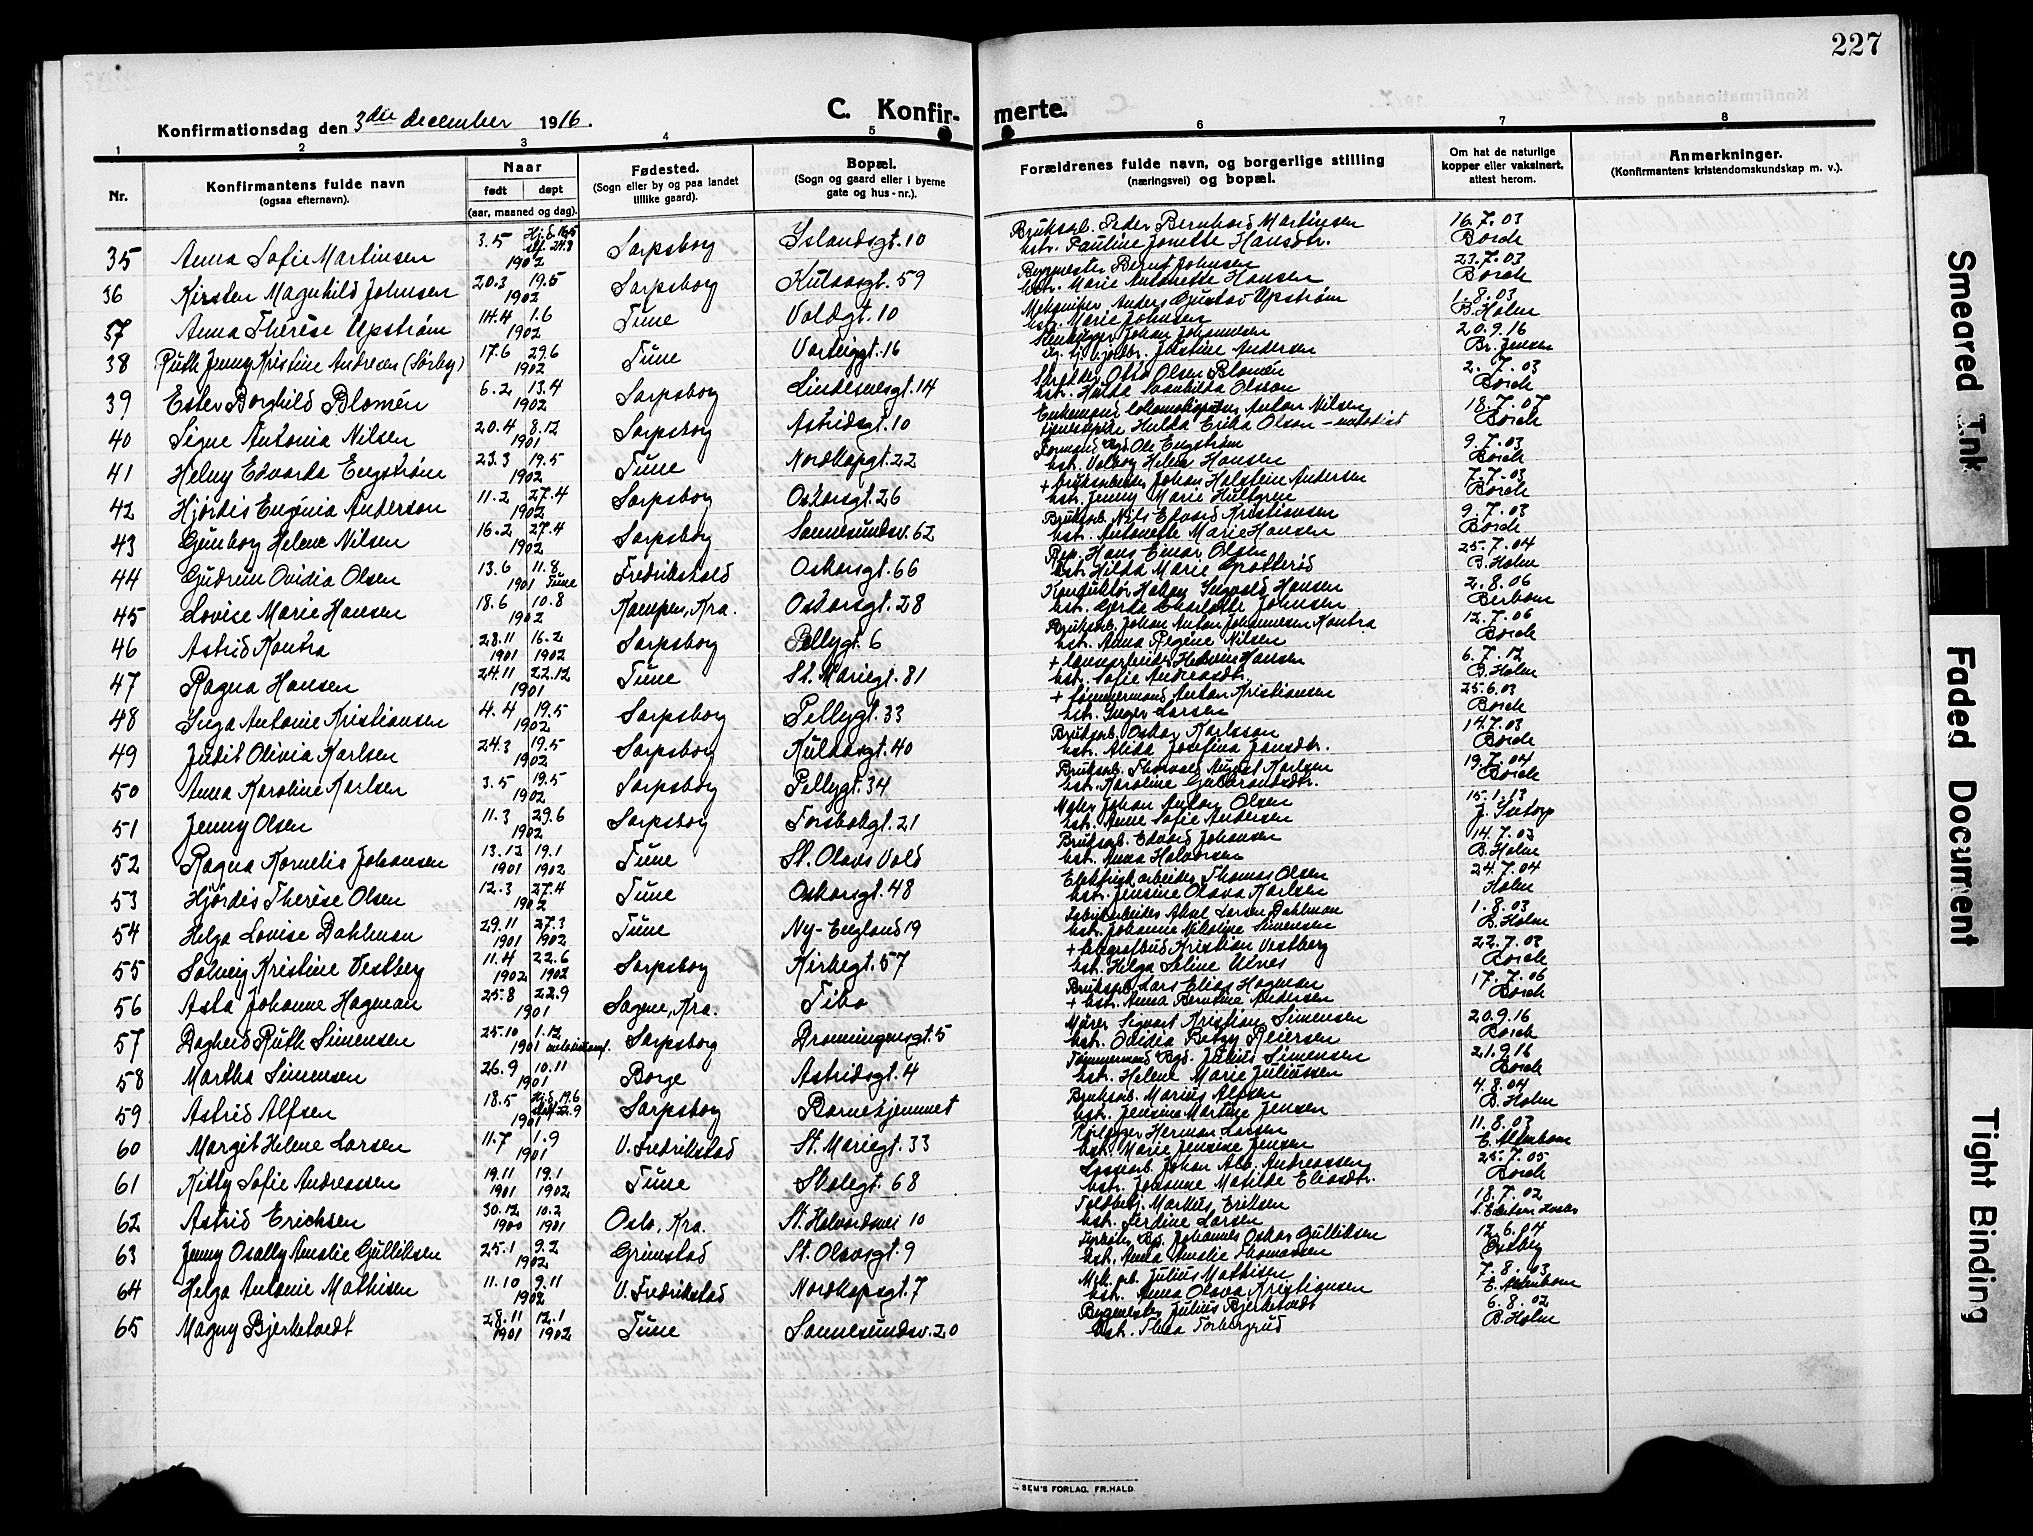 227
Konfirmationsdag den 3die december 1916.
C. Konfir-
merte.
1 2 3 4 5 6 7 8
Nr.
Konfirmantens fulde navn
(ogsaa efternavn).
Naar
født døpt
(aar, maaned og dag).
Fødested.
(Sogn eller by og paa landet
tillike gaard).
Bopæl.
(Sogn og gaard eller i byerne
gate og hus-nr.).
Forældrenes fulde navn, og borgerlige stilling
(næringsvei) og bopæl.
Om hat de naturlige
kopper eller vaksinert,
attest herom.
Anmerkninger.
(Konfirmantens kristendomskundskap m. v.).
35 Anna Sofie Martinsen 3.5 Hj.d. 16.5 1902 Sarpsborg Islandsgt. 10 Bruksarb. Peder Bernhard Martinsen 16.7.03
hstr. Pauline Jonette Hansdtr. Borch
36 Kirsten Magnhild Johnsen 20.3 19.5 1902 Sarpsborg Kulaasgt. 59 Byggmester Bernt Johnsen 23.7.03
hstr. Marie Antonette Hansen Borch
57 Anna Therese Upstrøm 14.4 1.6 1902 Tune Voldgt. 10 Mekaniker Anders Gustav Upstrøm 1.8.03
hstr. Marie Johnsen B. Holm
38 Ruth Jenny Kristine Andresen (Sørby) 17.6 29.6 1902 Tune Varteiggt. 16 Stenhugger Johan Johannesen 20.9.16
Justine Andersen Br. Jensen
39 Ester Borghild Blomén 6.2 13.4 1902 Sarpsborg Lindesnesgt. 14 Skrædder Otto Olsen Blomén 2.7.03
hstr. Hulda Svanhilda Olsson Borch
40 Signe Antonia Nilsen 20.4 8.12 1901 Sarpsborg Astridsgt. 10 Enkemand Anton Nilsen 18.7.07
Hulda Erika Olson - metodist Borch
41 Helny Edvarda Engstrøm 23.3 19.5 1902 Tune Nordkapgt. 22 Formand Ole Engstrøm 9.7.03
hstr. Valborg Helene Hansen Borch
42 Hjørdis Eugenia Anderson 11.2 27.4 1902 Sarpsborg Oskarsgt. 26 + bruksarbeider Johan Halstein Andersen 7.7.03
hstr. Jenny Marie Hultgren Borch
43 Gunborg Helene Nilsen 16.2 27.4 1902 Sarpsborg Sannesundsv. 62 Bruksarb. Nils Edvard Kristiansen 9.7.03
hstr. Antonette Marie Hansen Borch
44 Gudrun Ovidia Olsen 13.6 11.8 1901 Tune Fredrikshald Oskarsgt. 66 Rep. Hans Einar Olsen 25.7.04
hstr. Hilda Marie Grotterød B. Holm
45 Lovise Marie Hansen 18.6 10.8 1902 Kampen, Kra. Oskarsgt. 28 Konduktør Hakon Sigvald Hansen 2.8.06
hstr. Gerda Charlotte Johnsen Berbom
46 Astrid Kontra 28.11 1901 16.2 1902 Sarpsborg Pellygt. 6 Bruksarb. Johan Anton Johannesen Kontra 12.7.06
hstr. Anna Regine Nilsen Borch
47 Ragna Hansen 24.11 22.12 1901 Tune St. Mariegt. 81 + Hansen 6.7.12
hstr. Sofie Andreasdtr. B. Holm
48 Inga Antonie Kristiansen 4.4 19.5 1902 Sarpsborg Pellygt. 33 + tømmermand Anton Kristiansen 25.6.03
hstr. Inger Larsen Borch
49 Judit Olivia Karlsen 24.3 19.5 1902 Sarpsborg Kulaasgt. 40 Bruksarb. Oskar Karlsson 14.7.03
hstr. Alida Josefina Jansdtr. Borch
50 Anna Karoline Karlsen 3.5 19.5 1902 Sarpsborg Pellygt. 34 Bruksarb. Thorvald August Karlsen 19.7.04
hstr. Karoline Gulbrandsdtr. Borch
51 Jenny Olsen 11.3 29.6 1902 Sarpsborg Torsbakgt. 21 Maler Johan Anton Olsen 15.1.13
hstr. Anne Sofie Andersen J. Sutorp
52 Ragna Kornelia Johansen 13.12 1901 19.1 1902 Tune St. Olavs Vold Bruksarb. Edvard Johansen 14.7.03
hstr. Anna Halvorsen B. Holm
53 Hjørdis Therese Olsen 12.3 27.4 1902 Tune Oskarsgt. 48 Elektrisk arbeider Thomas Olsen 24.7.04
hstr. Jensine Olava Karlsen Holm
54 Helga Lovise Dahlman 29.11 1901 27.3 1902 Tune Ny-England 19 Fabrikarbeider Aksel Larsen Dahlman 1.8.03
hstr. Johanne Nikoline Simensen B. Holm
55 Solveig Kristine Vestberg 11.4 1902 22.6 1902 Sarpsborg Kirkegt. 57 + telegrafbud Kristian Vestberg 22.7.03
hstr. Helga Seline Ulves Borch
56 Asta Johanne Hagman 25.8 22.9 1901 Sagene, Kra. Tibo Bruksarb. Lars Elias Hagman 17.7.06
+ hstr. Anna Berntine Andersen Borch
57 Dagheid Ruth Simensen 25.10 1.12 1901 Sarpsborg Dronningensgt. 5 Murer Sigvart Kristian Simensen 20.9.16
hstr. Ovidia Betzy Reiersen Borch
58 Martha Simensen 26.9 10.11 1901 Borge Astridsgt. 4 Tømmermand Bgd. Julius Simensen 21.9.16
hstr. Helene Marie Juliussen Borch
59 Astrid Alfsen 18.5 Hj.d. 19.6 1901 Sarpsborg Barnehjemmet Bruksarb. Marius Alfsen 4.8.04
hstr. Jensine Martine Jensen B. Holm
60 Margit Helene Larsen 11.7 1.9 1901 V. Fredrikstad St. Mariegt. 33 Rørlægger Herman Larsen 11.8.03
hstr. Marie Jensine Jensen E. Almbom
61 Kitty Sofie Andreassen 19.11 1901 19.1 1902 Tune Skolegt. 68 Lossearb. Johan Alb. Andreassen 25.7.05
hstr. Johanne Matilde Eliasdtr. Borch
62 Astrid Erichsen 30.12 1900 10.2 1901 Oslo, Kra. St. Halvordsvei 10 Toldbetj. Markus Eriksen 18.7.02
hstr. Ferdine Larsen
63 Jenny Osally Amalie Gulliksen 25.1 9.2 1902 Grimstad St. Olavsgt. 9 Johannes Oskar Gulliksen 12.6.04
hstr. Anna Amalie Thomassen Østby
64 Helga Antonie Mathisen 11.10 9.11 1902 V. Fredrikstad Nordkapsgt. 7 Mek. arb. Julius Mathisen 7.8.03
hstr. Anna Olava Kristiansen E. Almbom
65 Magny Bjerketvedt 28.11 1901 12.1 1902 Tune Sannesundsv. 20 Bygmester Julius Bjerketvedt 6.8.02
hstr. Thea Torbergrud B. Holm
SEM'S FORLAG, FR.HALD
Smeared Ink
Faded Document
Tight Binding